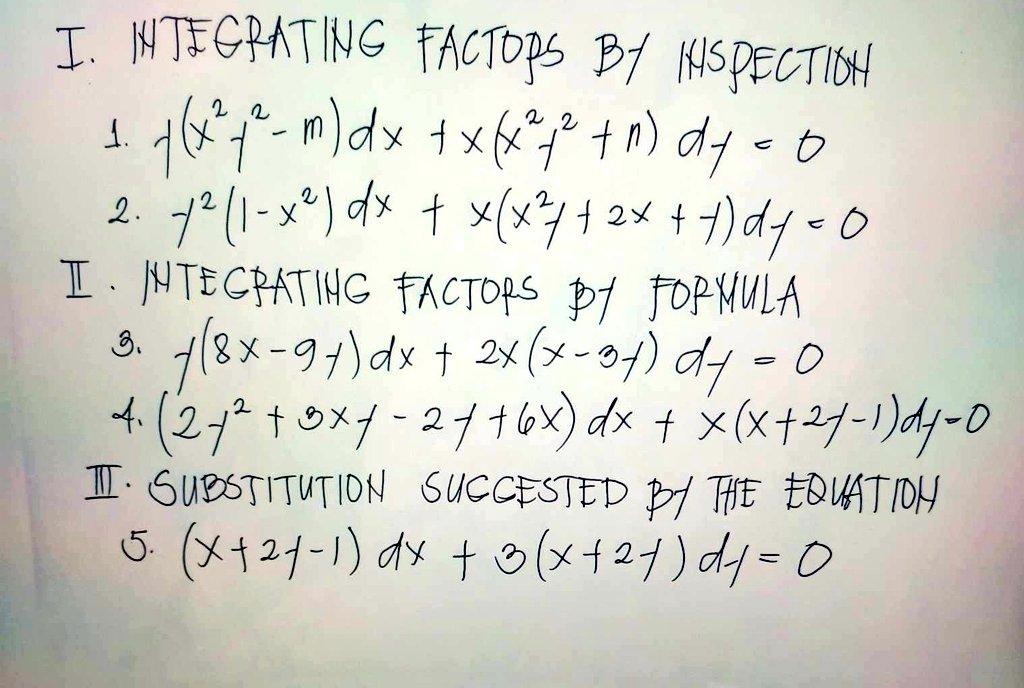 I. INTEGRATING FACTORS BY INSPECTION
1. y(x²y² - m)dx + x(x²y² + n) dy = 0
2. y²(1-x²) dx + x(x²y + 2x + y)dy = 0
II. INTEGRATING FACTORS BY FORMULA
3. y(8x-9y)dx + 2x(x-3y) dy = 0
4. (2y² + 3xy - 2y + 6x) dx + x(x+2y-1)dy=0
III. SUBSTITUTION SUGGESTED BY THE EQUATION
5. (x+2y-1) dx + 3(x+2y)dy = 0